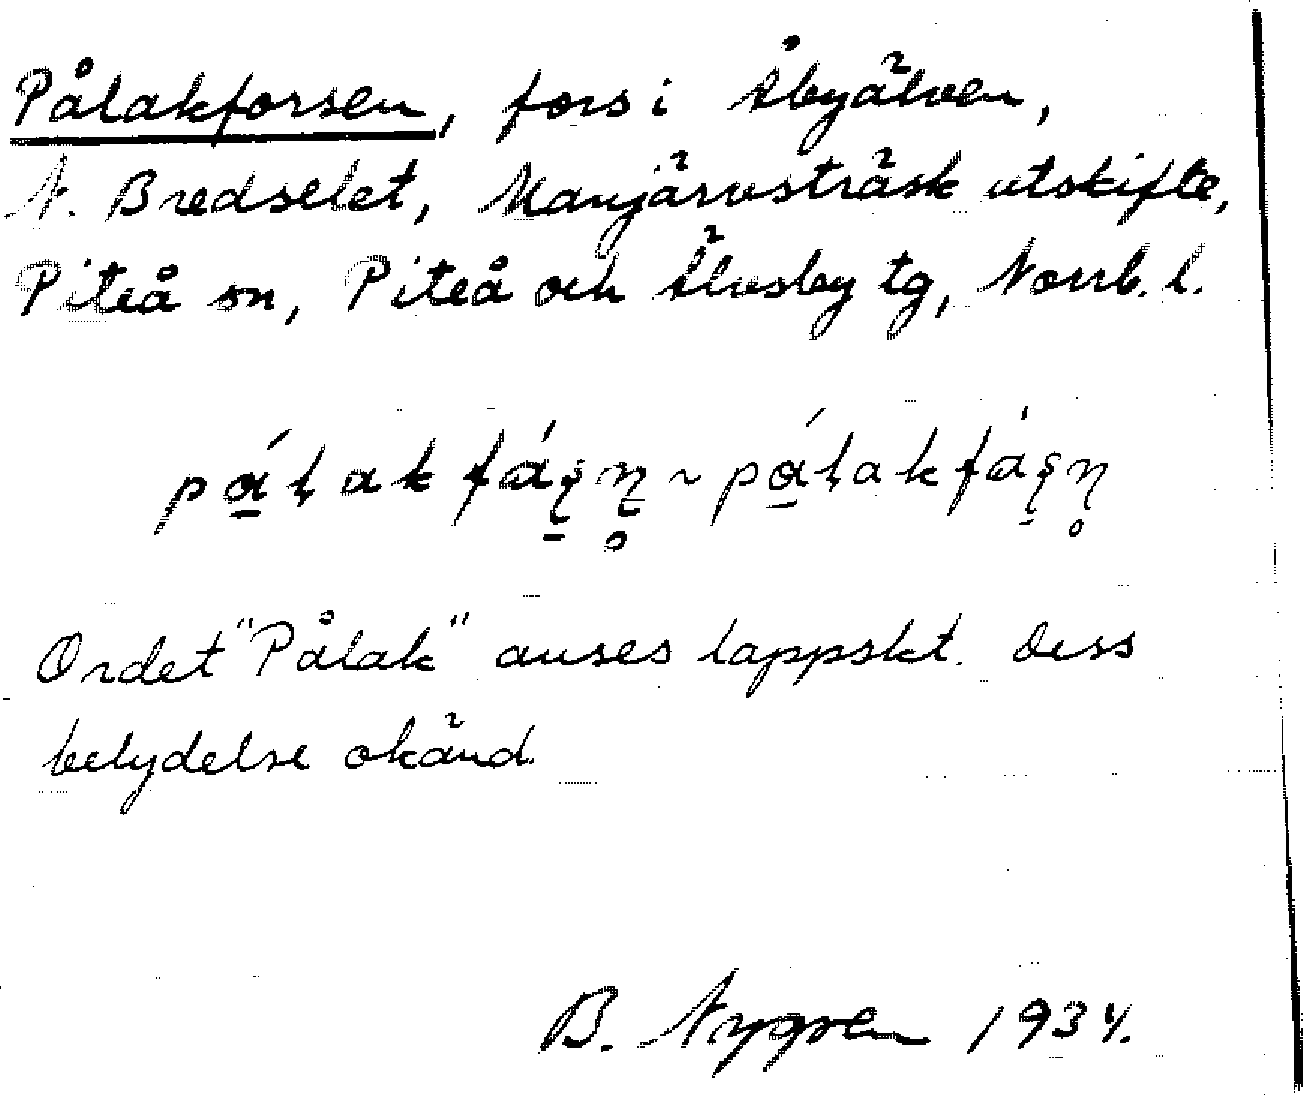 Pålakforsen, fors i Åbyälven,
N. Bredselet, Manjärvsträsk utskifte,
Piteå sn, Piteå och Älvsby tg, Norrb. l.
Ordet "Pålak" anses lappskt. Dess
betydelse okänd.
B. Nygren 1934.